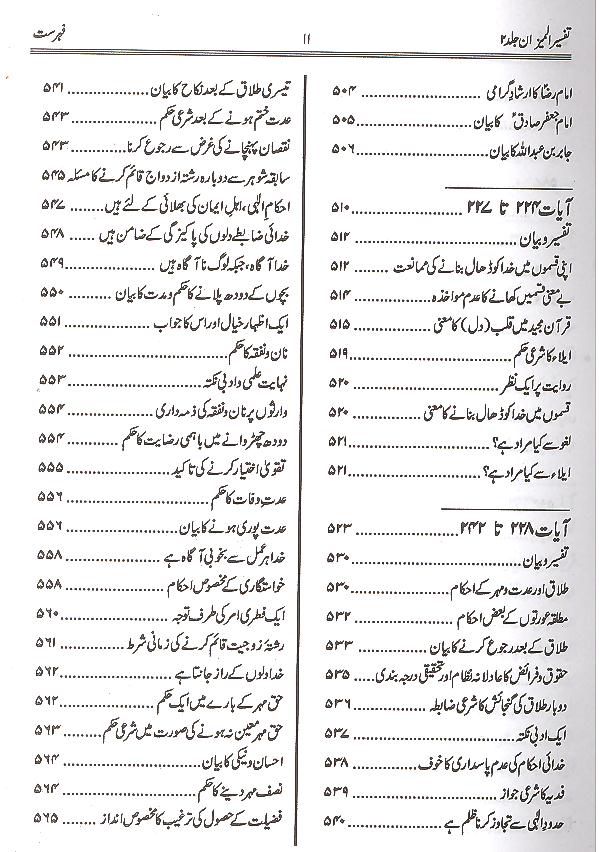 تفسیر المیزان جلد ۲
۱۱
فہرست
امام رضاؑ کا ارشاد گرامی ........ ۵۰۴
امام جعفر صادقؑ کا بیان ........ ۵۰۵
جابر بن عبداللہ کا بیان ........ ۵۰۶
آیات ۲۲۴ تا ۲۲۷ ........ ۵۱۰
تفسیر و بیان ........ ۵۱۲
اپنی قسموں میں خدا کو ڈھال بنانے کی ممانعت ........ ۵۱۲
بے معنی قسمیں کھانے کا عدم مواخذہ ........ ۵۱۴
قرآن مجید میں قلب (دل) کا معنی ........ ۵۱۵
ایلاء کا شرعی حکم ........ ۵۱۹
روایت پر ایک نظر ........ ۵۲۰
قسموں میں خدا کو ڈھال بنانے کا معنی ........ ۵۲۰
لغو سے کیا مراد ہے؟ ........ ۵۲۱
ایلاء سے کیا مراد ہے؟ ........ ۵۲۱
آیات ۲۲۸ تا ۲۴۲ ........ ۵۲۳
تفسیر و بیان ........ ۵۳۰
طلاق اور عدت و مہر کے احکام ........ ۵۳۰
مطلقہ عورتوں کے بعض احکام ........ ۵۳۲
طلاق کے بعد رجوع کرنے کا بیان ........ ۵۳۳
حقوق و فرائض کا عادلانہ نظام اور تحقیقی درجہ بندی ........ ۵۳۵
دوبار طلاق کی گنجائش کا شرعی ضابطہ ........ ۵۳۶
ایک ادبی نکتہ ........ ۵۳۷
خدائی احکام کی عدم پاسداری کا خوف ........ ۵۳۸
فدیہ کا شرعی جواز ........ ۵۳۹
حدود الٰہی سے تجاوز کرنا ظلم ہے ........ ۵۴۰
تیسری طلاق کے بعد نکاح کا بیان ........ ۵۴۱
عدت ختم ہونے کے بعد شرعی حکم ........ ۵۴۳
نقصان پہنچانے کی غرض سے رجوع کرنا ........ ۵۴۳
سابقہ شوہر سے دوبارہ رشتہ ازدواج قائم کرنے کا مسئلہ ۵۴۵
احکام الٰہی، اہل ایمان کی بھلائی کے لئے ہیں ........ ۵۴۷
خدائی ضابطے دلوں کی پاکیزگی کے ضامن ہیں ...... ۵۴۸
خدا آگاہ، جبکہ لوگ نا آگاہ ہیں ........ ۵۴۹
بچوں کے دودھ پلانے کا حکم و مدت کا بیان ........ ۵۵۰
ایک اظہار خیال اور اس کا جواب ........ ۵۵۱
نان و نفقہ کا حکم ........ ۵۵۲
نہایت علمی و ادبی نکتہ ........ ۵۵۳
وارثوں پر نان و نفقہ کی ذمہ داری ........ ۵۵۴
دودھ چھڑوانے میں باہمی رضایت کا حکم ........ ۵۵۴
تقویٰ اختیار کرنے کی تاکید ........ ۵۵۵
عدت وفات کا حکم ........ ۵۵۶
عدت پوری ہونے کا بیان ........ ۵۵۶
خدا ہر عمل سے بخوبی آگاہ ہے ........ ۵۵۸
خواستگاری کے مخصوص احکام ........ ۵۵۸
ایک فطری امر کی طرف توجہ ........ ۵۶۰
رشتۂ زوجیت قائم کرنے کی زمانی شرط ........ ۵۶۱
خدا دلوں کے راز جانتا ہے ........ ۵۶۲
حق مہر کے بارے میں ایک حکم ........ ۵۶۲
حق مہر معین نہ ہونے کی صورت میں شرعی حکم ........ ۵۶۳
احسان و نیکی کا بیان ........ ۵۶۴
نصف مہر دینے کا حکم ........ ۵۶۴
فضیلت کے حصول کی ترغیب کا مخصوص انداز ........ ۵۶۵